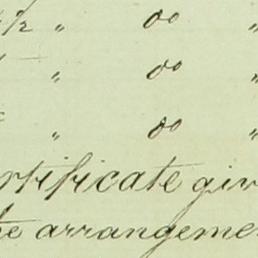 1/2 " do "
" do "
" do "
rtificate giv
te arrangeme